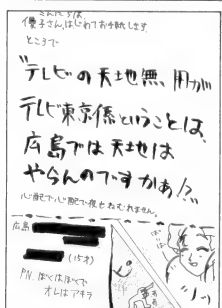 こんにちは
優子さん、はじめてお手紙します。
ところで
"テレビの天地無用が
テレビ東京係ということは、
広島では天地は
やらんのですかあ!?"
心配で心配で夜もねむれません。
広島
(15才)
P.N. ぼくはぼくで
オレはアキラ